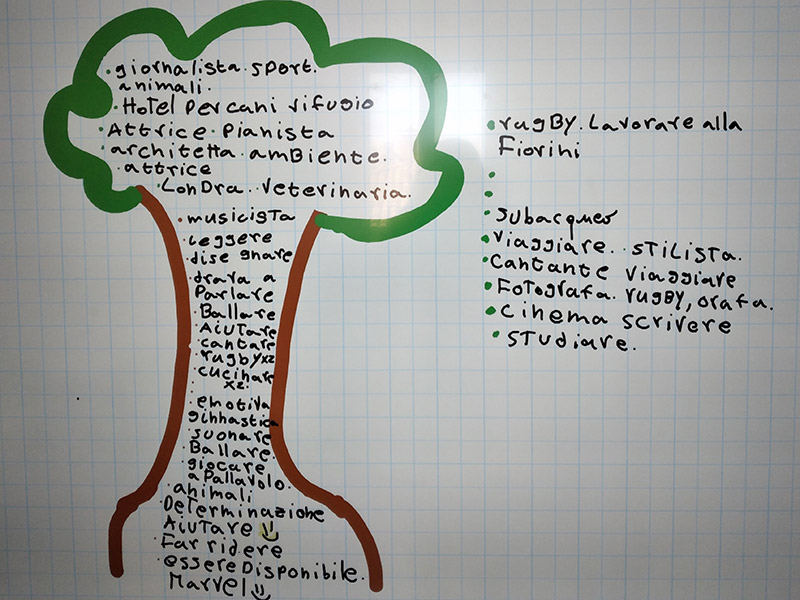 · giornalista. sport.
animali.
· Hotel per cani rifugio
· Attrice. Pianista
· architetta. amBiente.
· attrice
· LonDra. Veterinaria.
· musicista
· Leggere
dise gnare
· brava a
Parlare
· Ballare
· Aiutare
· cantare
· rugby x2
· cucinare
x2.
· emotiva
ginnastica
· suonare
· Ballare.
· giocare
a Pallavolo.
· animali
· Determinazione
Aiutare
Far ridere
· essere Disponibile.
Marvel
· rugBy. Lavorare alla
Fiorini
· subacqueo
· Viaggiare. . STiLista.
· Cantante Viaggiare
· Fotografa. rugby, orafa.
· Cinema scrivere
· STudiare.